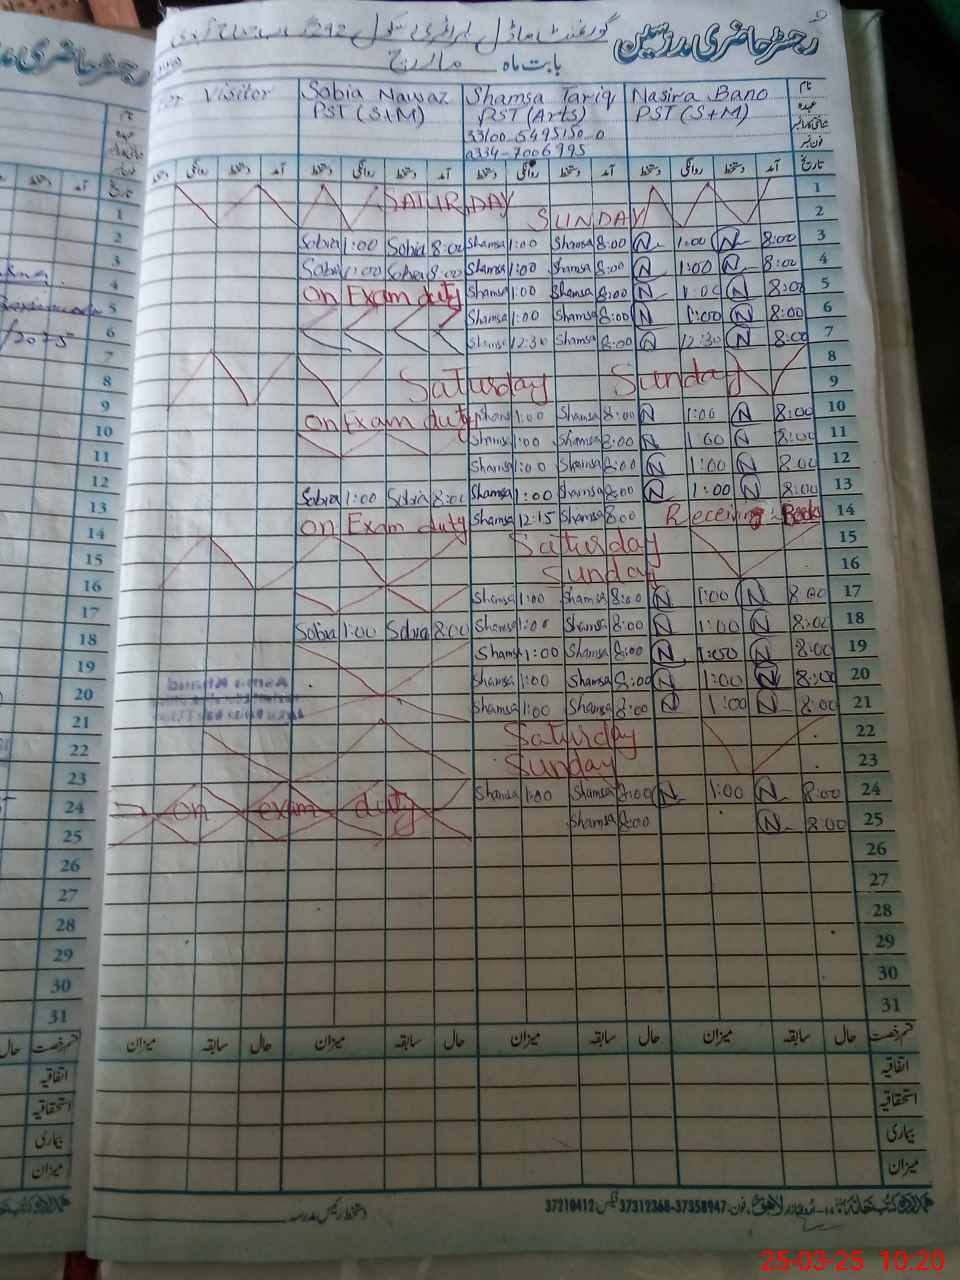 رجسٹر حاضری مدرسین
بابت ماہ مارچ
For Visitor Sobia Nawaz Shamsa Tariq Nasira Bano نام
PST (S+M) PST (Arts) PST (S+M) عہدہ
33100-5495150-0
0334-7006995 فون نمبر
دستخط روانگی دستخط آمد دستخط روانگی دستخط آمد دستخط روانگی دستخط آمد دستخط روانگی دستخط آمد تاریخ
SATURDAY 1
SUNDAY 2
Sobia 1:00 Sobia 8:00 Shamsa 1:00 Shamsa 8:00 N 1:00 N 8:00 3
Sobia 1:00 Sobia 8:00 Shamsa 1:00 Shamsa 8:00 N 1:00 N 8:00 4
On Exam duty Shamsa 1:00 Shamsa 8:00 N 1:00 N 8:00 5
Shamsa 1:00 Shamsa 8:00 N 1:00 N 8:00 6
Shamsa 12:30 Shamsa 8:00 N 12:30 N 8:00 7
8
Saturday Sunday 9
On Exam duty Shamsa 1:00 Shamsa 8:00 N 1:00 N 8:00 10
Shamsa 1:00 Shamsa 8:00 N 1:00 N 8:00 11
Shamsa 1:00 Shamsa 8:00 N 1:00 N 8:00 12
Sobia 1:00 Sobia 8:00 Shamsa 1:00 Shamsa 8:00 N 1:00 N 8:00 13
On Exam duty Shamsa 12:15 Shamsa 8:00 Receiving Books 14
Saturday 15
Sunday 16
Shamsa 1:00 Shamsa 8:00 N 1:00 N 8:00 17
Sobia 1:00 Sobia 8:00 Shamsa 1:00 Shamsa 8:00 N 1:00 N 8:00 18
Shamsa 1:00 Shamsa 8:00 N 1:00 N 8:00 19
Shamsa 1:00 Shamsa 8:00 N 1:00 N 8:00 20
Shamsa 1:00 Shamsa 8:00 N 1:00 N 8:00 21
Saturday 22
Sunday 23
On exam duty Shamsa 1:00 Shamsa 8:00 N 1:00 N 8:00 24
Shamsa 8:00 N 8:00 25
26
27
28
29
30
31
میزان سابقہ حال میزان سابقہ حال میزان سابقہ حال میزان سابقہ حال قسم رخصت
اتفاقیہ
استحقاقیہ
بیماری
میزان
دستخط رئیس مدرسہ
اردو بازار لاہور فون: 37358947-37312368 فیکس: 37210412
رجسٹر حاضری
تاریخ
1
2
3
4
5
6
7
8
9
10
11
12
13
14
15
16
17
18
19
20
21
22
23
24
25
26
27
28
29
30
31
حال قسم رخصت
اتفاقیہ
استحقاقیہ
بیماری
میزان
25-03-25 10:20